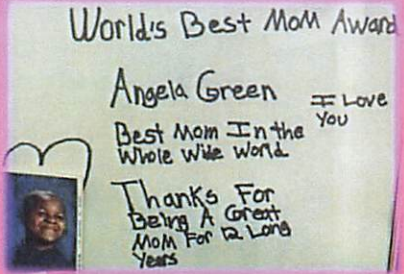 World's Best Mom Award
Angela Green
I Love
You
Best Mom In the
Whole Wide World
Thanks For
Being A Great
Mom For 12 Long
Years